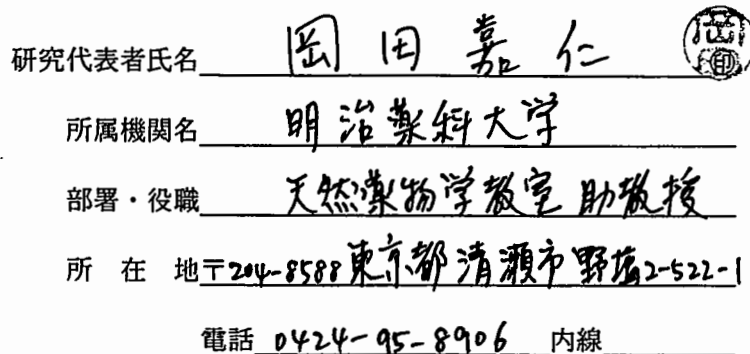 研究代表者氏名 岡田嘉仁 岡田印
所属機関名 明治薬科大学
部署・役職 天然薬物学教室 助教授
所在地 〒204-8588 東京都清瀬市野塩2-522-1
電話 0424-95-8906 内線